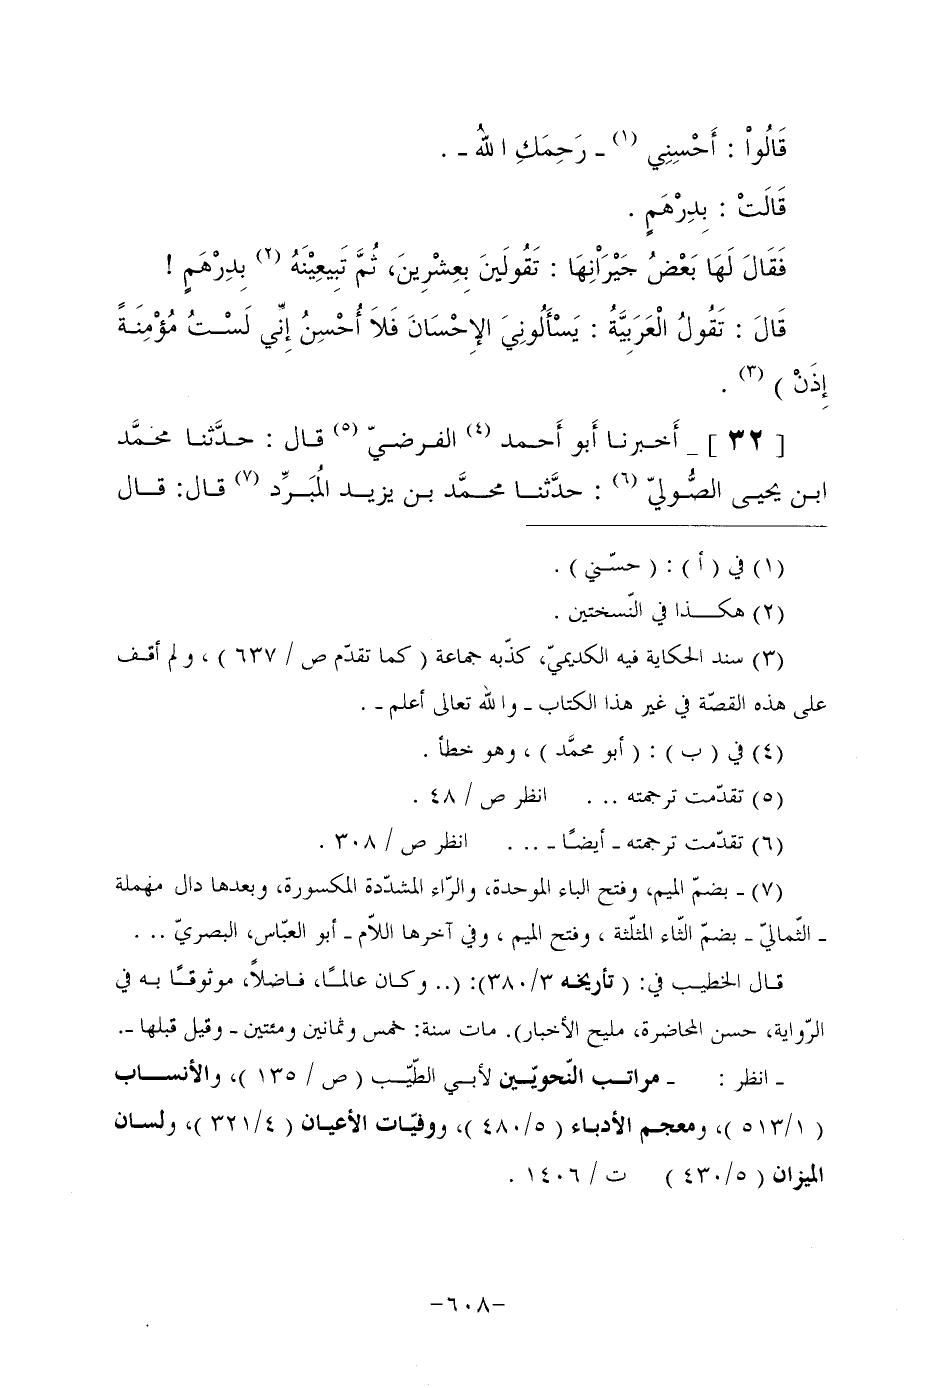 قَالُواْ : أَحْسِنِي (١) ـ رَحِمَكِ اللهُ ـ .
قَالَتْ : بِدِرْهَمٍ .
فَقَالَ لَهَا بَعْضُ جَيْرَاْنِهَا : تَقُولَينَ بِعِشْرِينَ، ثُمَّ تَبِيعِيْنَهُ (٢) بِدِرْهَمٍ !
قَالَ : تَقُولُ الْعَرَبِيَّةُ : يَسْأَلُونِيَ الإِحْسَانَ فَلاَ أُحْسِنُ إِنِّي لَسْتُ مُؤْمِنَةً
إِذَنْ ) (٣) .
[ ٣٢ ] ـ أَخبرنا أبو أَحمد (٤) الفرضيّ (٥) قال : حدَّثنا محمَّد
ابن يحيى الصُّوليّ (٦) : حدَّثنا محمَّد بن يزيد المُبَرِّد (٧) قال: قال
(١) في ( أ ) : ( حسّني ) .
(٢) هكذا في النّسختين .
(٣) سند الحكاية فيه الكديميّ، كذّبه جماعة ( كما تقدّم ص / ٦٣٧ ) ، ولم أقف
على هذه القصّة في غير هذا الكتاب ـ والله تعالى أعلم ـ .
(٤) في ( ب ) : ( أبو محمَّد ) ، وهو خطأ .
(٥) تقدّمت ترجمته .. . انظر ص / ٤٨ .
(٦) تقدّمت ترجمته ـ أيضًا ـ .. . انظر ص / ٣٠٨ .
(٧) ـ بضمّ الميم، وفتح الباء الموحدة، والرّاء المشدّدة المكسورة، وبعدها دال مهملة
ـ الثّماليّ ـ بضمّ الثّاء المثلّثة ، وفتح الميم ، وفي آخرها اللاّم ـ أبو العبّاس، البصريّ .. .
قال الخطيب في: ( تأريخه ٣٨٠/٣): (.. وكان عالمًا، فاضلاً، موثوقًا به في
الرّواية، حسن المحاضرة، مليح الأخبار). مات سنة: خمس وثمانين ومئتين ـ وقيل قبلها ـ.
ـ انظر : ـ مراتب النّحويّين لأبي الطّيّب ( ص / ١٣٥ )، والأنساب
( ٥١٣/١ )، ومعجم الأدباء ( ٤٨٠/٥ )، ووفيّات الأعيان ( ٣٢١/٤ )، ولسان
الميزان ( ٤٣٠/٥ ) ت / ١٤٠٦ .
-٦٠٨-